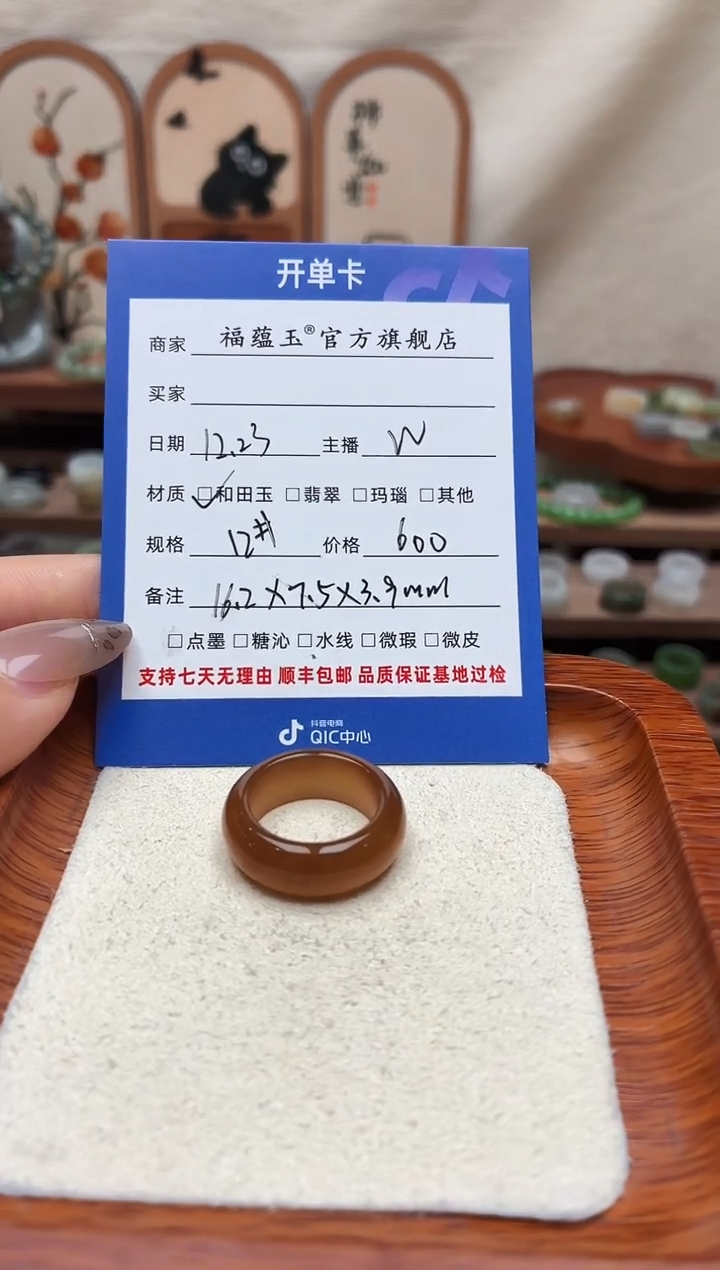 开单卡
商家 福蕴玉®官方旗舰店
买家
日期 12.23 主播 W
材质 ☑和田玉 □翡翠 □玛瑙 □其他
规格 12# 价格 600
备注 16.2×7.5×3.9mm
□点墨 □糖沁 □水线 □微瑕 □微皮
支持七天无理由 顺丰包邮 品质保证基地过检
抖音电商
QIC中心